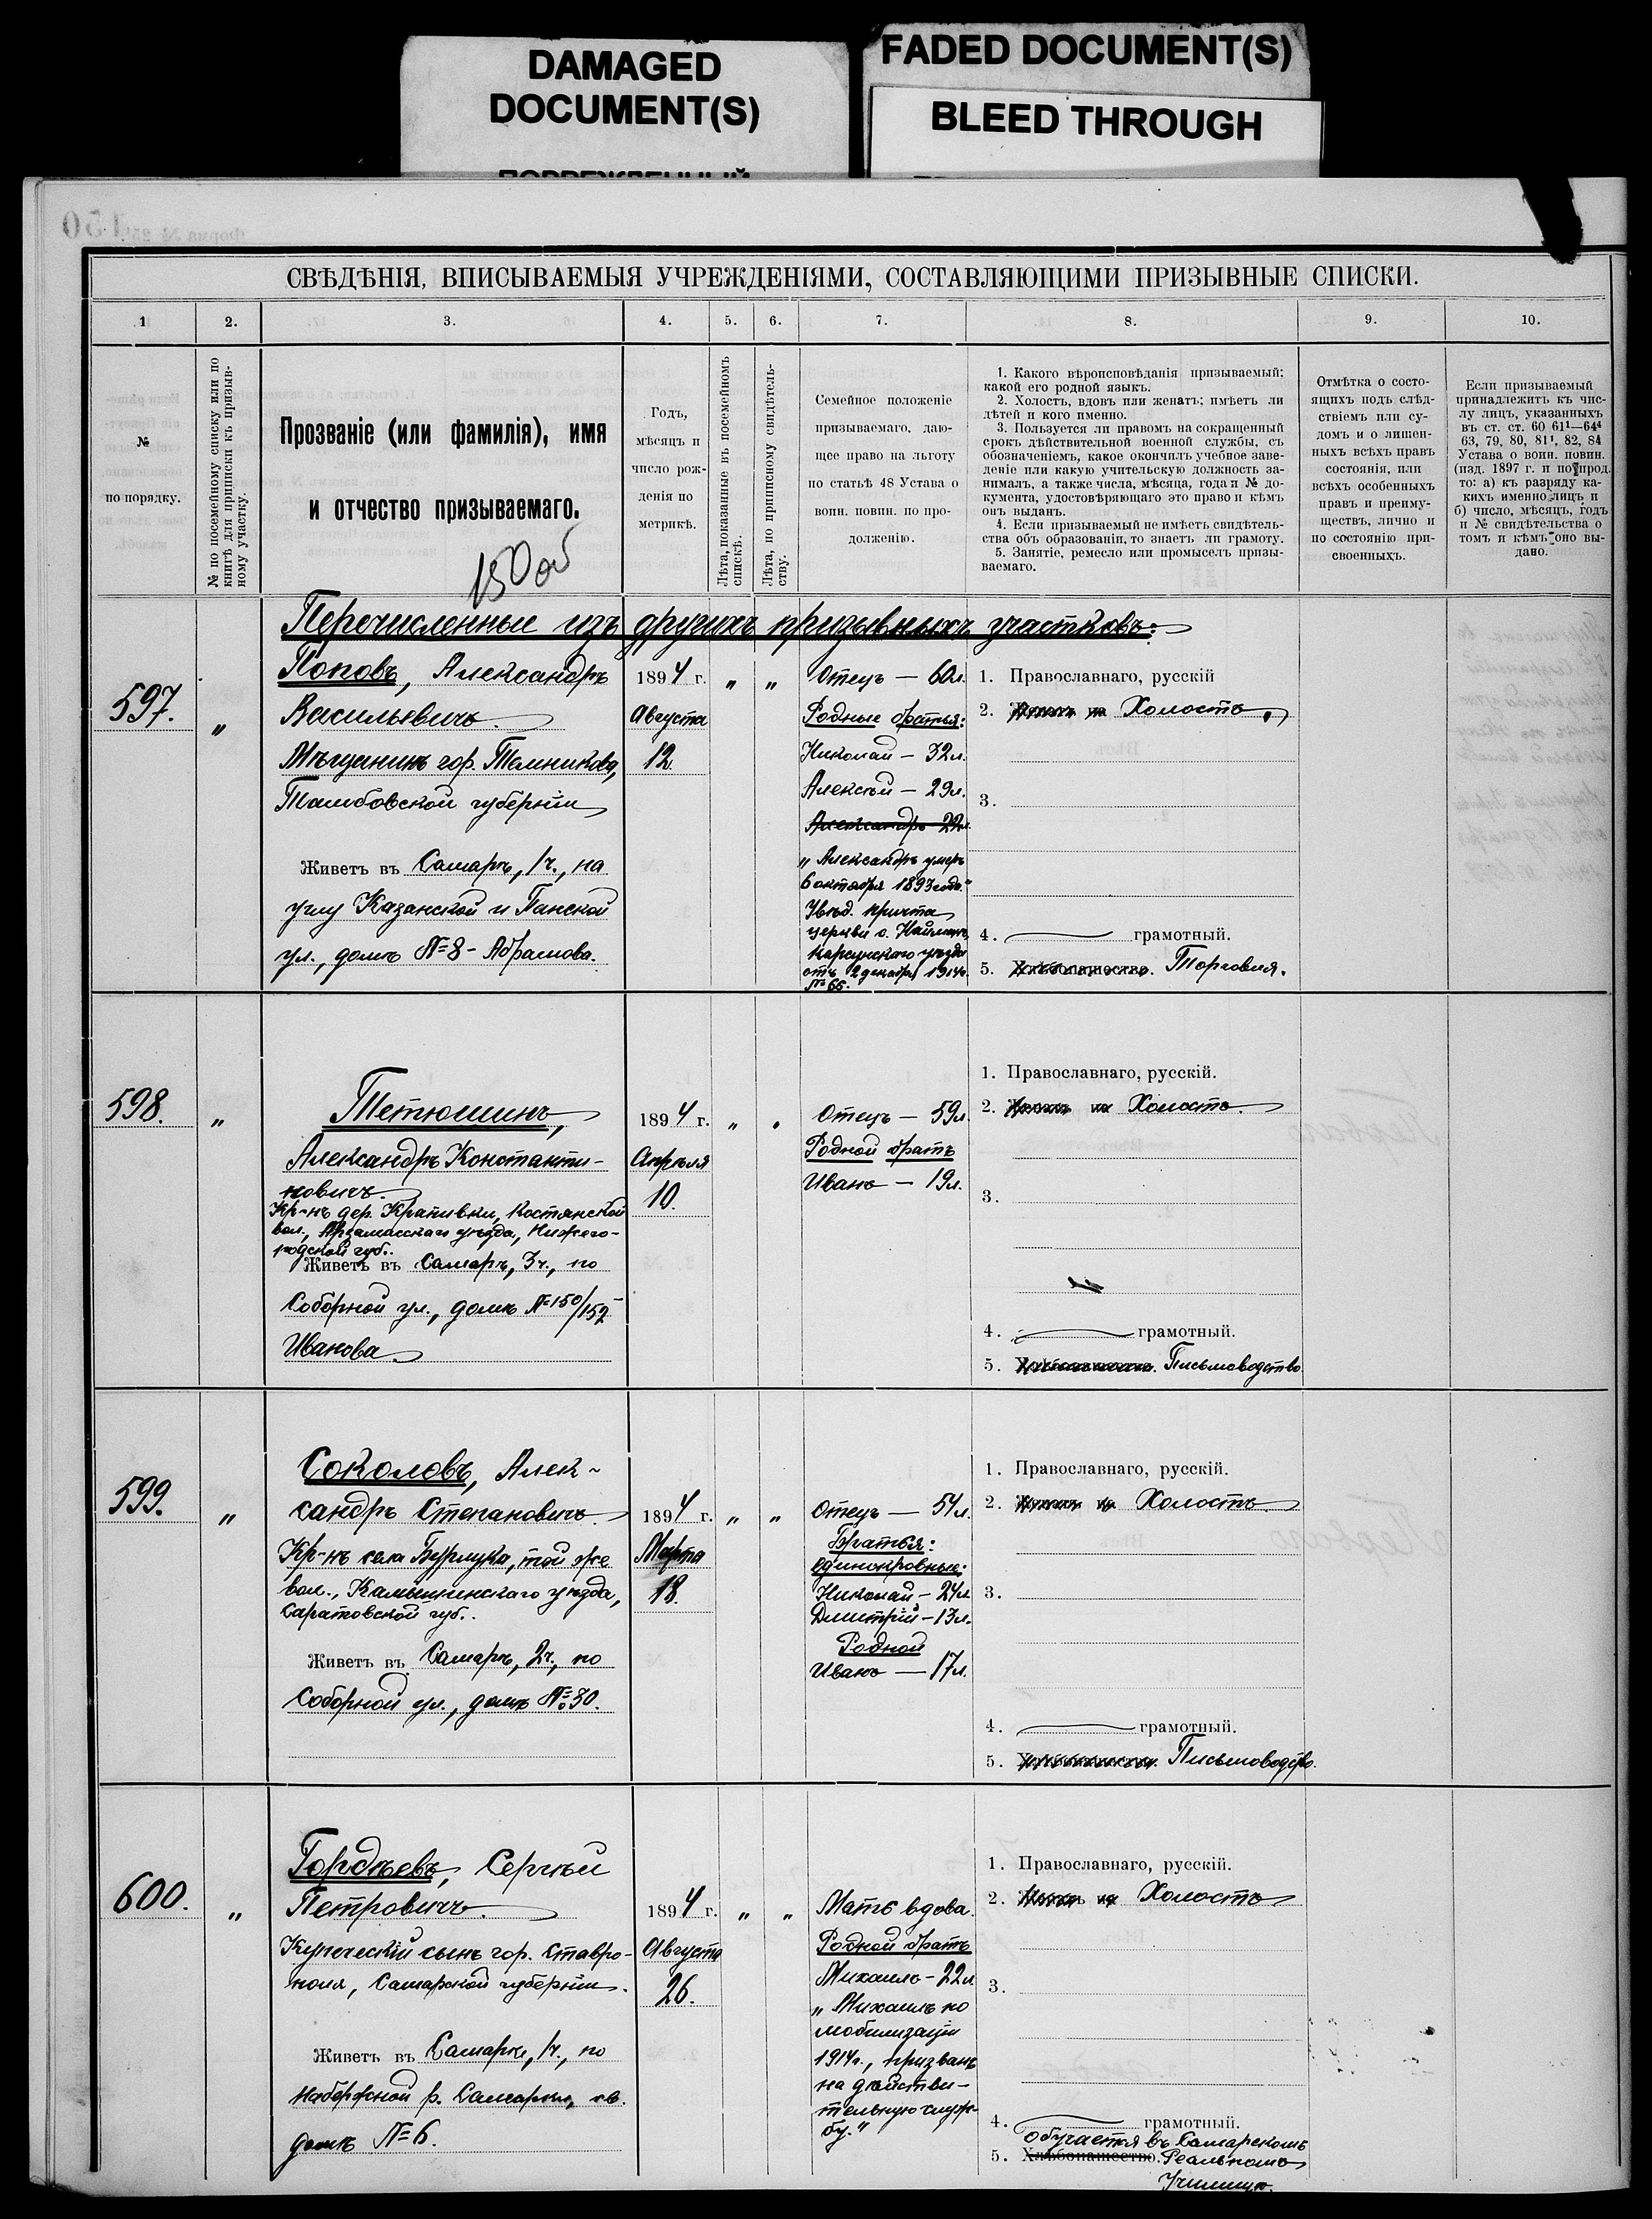 DAMAGED
DOCUMENT(S)
FADED DOCUMENT(S)
BLEED THROUGH
СВѢДѢНІЯ, ВПИСЫВАЕМЫЯ УЧРЕЖДЕНІЯМИ, СОСТАВЛЯЮЩИМИ ПРИЗЫВНЫЕ СПИСКИ.
1 2. 3. 4. 5. 6. 7. 8. 9. 10.
№
по порядку.
№ по посемейному списку или по
книгѣ для приписки къ призыв-
ному участку.
Прозваніе (или фамилія), имя
и отчество призываемаго.
150 об
Годъ,
мѣсяцъ и
число рож-
денія по
метрикѣ.
Лѣта, показанные въ посемейномъ
спискѣ.
Лѣта, по приписному свидѣтель-
ству.
Семейное положеніе
призываемаго, даю-
щее право на льготу
по статьѣ 48 Устава о
воин. повин. по про-
долженію.
1. Какого вѣроисповѣданія призываемый;
какой его родной языкъ.
2. Холостъ, вдовъ или женатъ; имѣетъ ли
дѣтей и кого именно.
3. Пользуется ли правомъ на сокращенный
срокъ дѣйствительной военной службы, съ
обозначеніемъ, какое окончилъ учебное заве-
деніе или какую учительскую должность за-
нималъ, а также числа, мѣсяца, года и № до-
кумента, удостовѣряющаго это право и кѣмъ
онъ выданъ.
4. Если призываемый не имѣетъ свидѣтель-
ства объ образованіи, то знаетъ ли грамоту.
5. Занятіе, ремесло или промыселъ призы-
ваемаго.
Отмѣтка о состо-
ящихъ подъ слѣд-
ствіемъ или су-
домъ и о лишен-
ныхъ всѣхъ правъ
состоянія, или
всѣхъ особенныхъ
правъ и преиму-
ществъ, лично и
по состоянію при-
своенныхъ.
Если призываемый
принадлежитъ къ чис-
лу лицъ, указанныхъ
въ ст. ст. 60 61¹—64⁴
63, 79, 80, 81¹, 82, 84
Устава о воин. повин.
(изд. 1897 г. и по прод.
то: а) къ разряду ка-
кихъ именно лицъ и
б) число, мѣсяцъ, годъ
и № свидѣтельства о
томъ и кѣмъ оно вы-
дано.
Перечисленные изъ другихъ призывныхъ участковъ:
597. „
Поповъ, Александръ
Васильевичъ.
Мѣщанинъ гор. Темникова,
Тамбовской губерніи
Живетъ въ Самарѣ, 1 ч., на
углу Казанской и Панской
ул., домъ № 8 - Абрамова.
1894 г.
Августа
12.
„ „
Отецъ — 60 л.
Родные братья:
Николай — 32 л.
Алексѣй — 29 л.
Александръ 22 л.
„Александръ умеръ
6 октября 1893 года."
Увѣд. причта
церкви с. Найманъ
Карсунскаго уѣзда
отъ 2 декабря 1914 г.
№ 66.
1. Православнаго, русскій
2. Холостъ.
3.
4. грамотный.
5. Хлѣбопашество. Торговля.
598. „
Тетюшинъ,
Александръ Константи-
новичъ.
Кр-нъ дер. Крапивки, Костянской
вол., Арзамасскаго уѣзда, Нижего-
родской губ.
Живетъ въ Самарѣ, 3 ч., по
Соборной ул., домъ № 150/152
Иванова
1894 г.
Апрѣля
10.
„ „
Отецъ — 59 л.
Родной братъ
Иванъ — 19 л.
1. Православнаго, русскій.
2. Холостъ.
3.
4. грамотный.
5. Письмоводство
599. „
Соколовъ, Алек-
сандръ Степановичъ.
Кр-нъ села Бурлука, той же
вол., Камышинскаго уѣзда,
Саратовской губ.
Живетъ въ Самарѣ, 2 ч., по
Соборной ул., домъ № 30.
1894 г.
Марта
18.
„ „
Отецъ — 54 л.
Братья:
единокровные:
Николай — 24 л.
Дмитрій — 13 л.
Родной
Иванъ — 17 л.
1. Православнаго, русскій.
2. Холостъ
3.
4. грамотный.
5. Письмоводство.
600. „
Гордѣевъ, Сергѣй
Петровичъ.
Купеческій сынъ гор. Ставро-
поля, Самарской губерніи.
Живетъ въ Самарѣ, 1 ч., по
набержной р. Самарки, св.
домъ № 6.
1894 г.
Августа
26.
„ „
Мать вдова.
Родной братъ
Михаилъ - 22 л.
„Михаилъ по
мобилизаціи
1914 г., призванъ
на дѣйстви-
тельную служ-
бу."
1. Православнаго, русскій.
2. Холостъ
3.
4. грамотный.
обучается въ Самарскомъ
5. Хлѣбопашество. Реальномъ
Училищѣ.